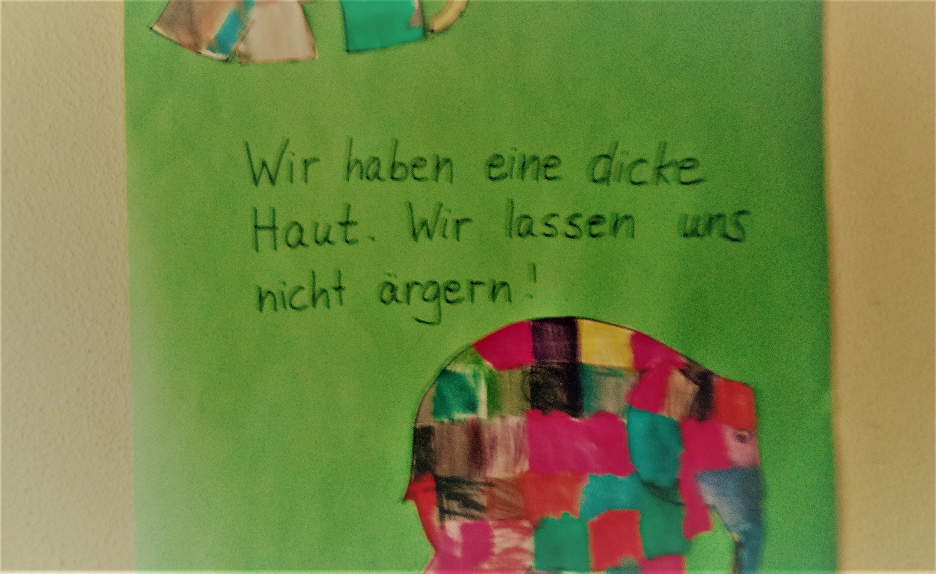 Wir haben eine dicke
Haut. Wir lassen uns
nicht ärgern!